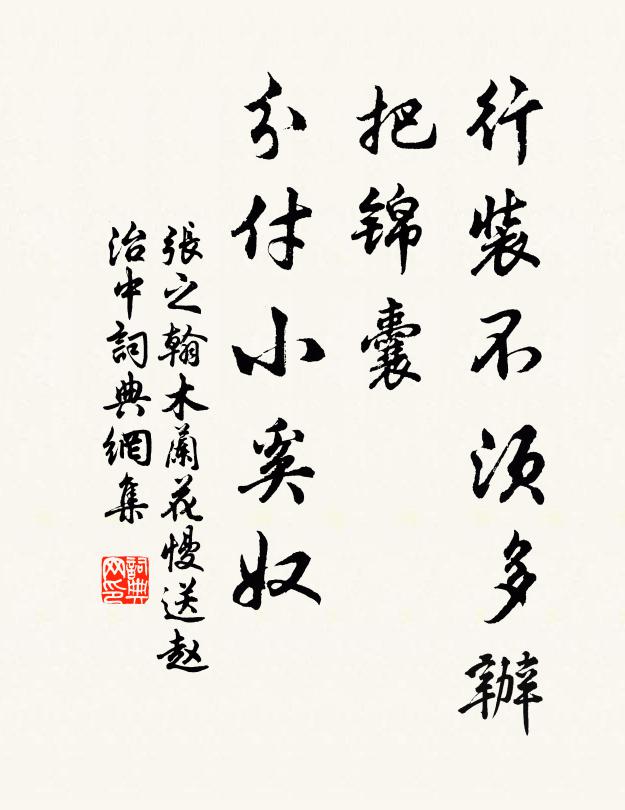 行裝不須多辦
把錦囊
分付小奚奴
張之翰木蘭花慢送赵
治中詞典網集
詞典网印